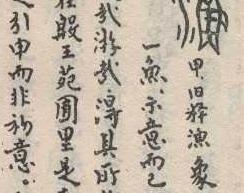 甲旧释渔象
一鱼示意而已
哉游哉得其所
殷王苑囿里是
引申而非初意